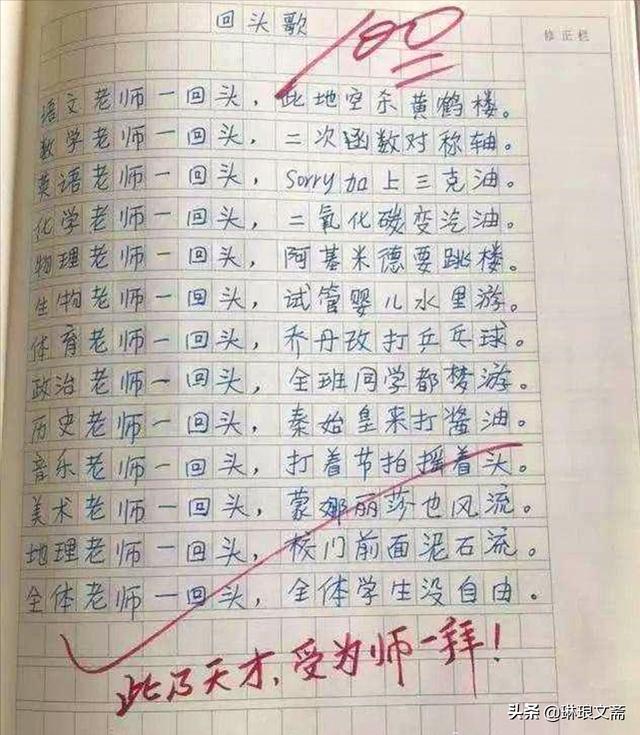 回头歌
100
修正栏
语文老师一回头，此地空杀黄鹤楼。
数学老师一回头，二次函数对称轴。
英语老师一回头，sorry加上三克油。
化学老师一回头，二氧化碳变汽油。
物理老师一回头，阿基米德要跳楼。
生物老师一回头，试管婴儿水里游。
体育老师一回头，乔丹改打乒乓球。
政治老师一回头，全班同学都梦游。
历史老师一回头，秦始皇来打酱油。
音乐老师一回头，打着节拍摇着头。
美术老师一回头，蒙娜丽莎也风流。
地理老师一回头，校门前面泥石流。
全体老师一回头，全体学生没自由。
此乃天才，受为师一拜！
头条 @琳琅文斋